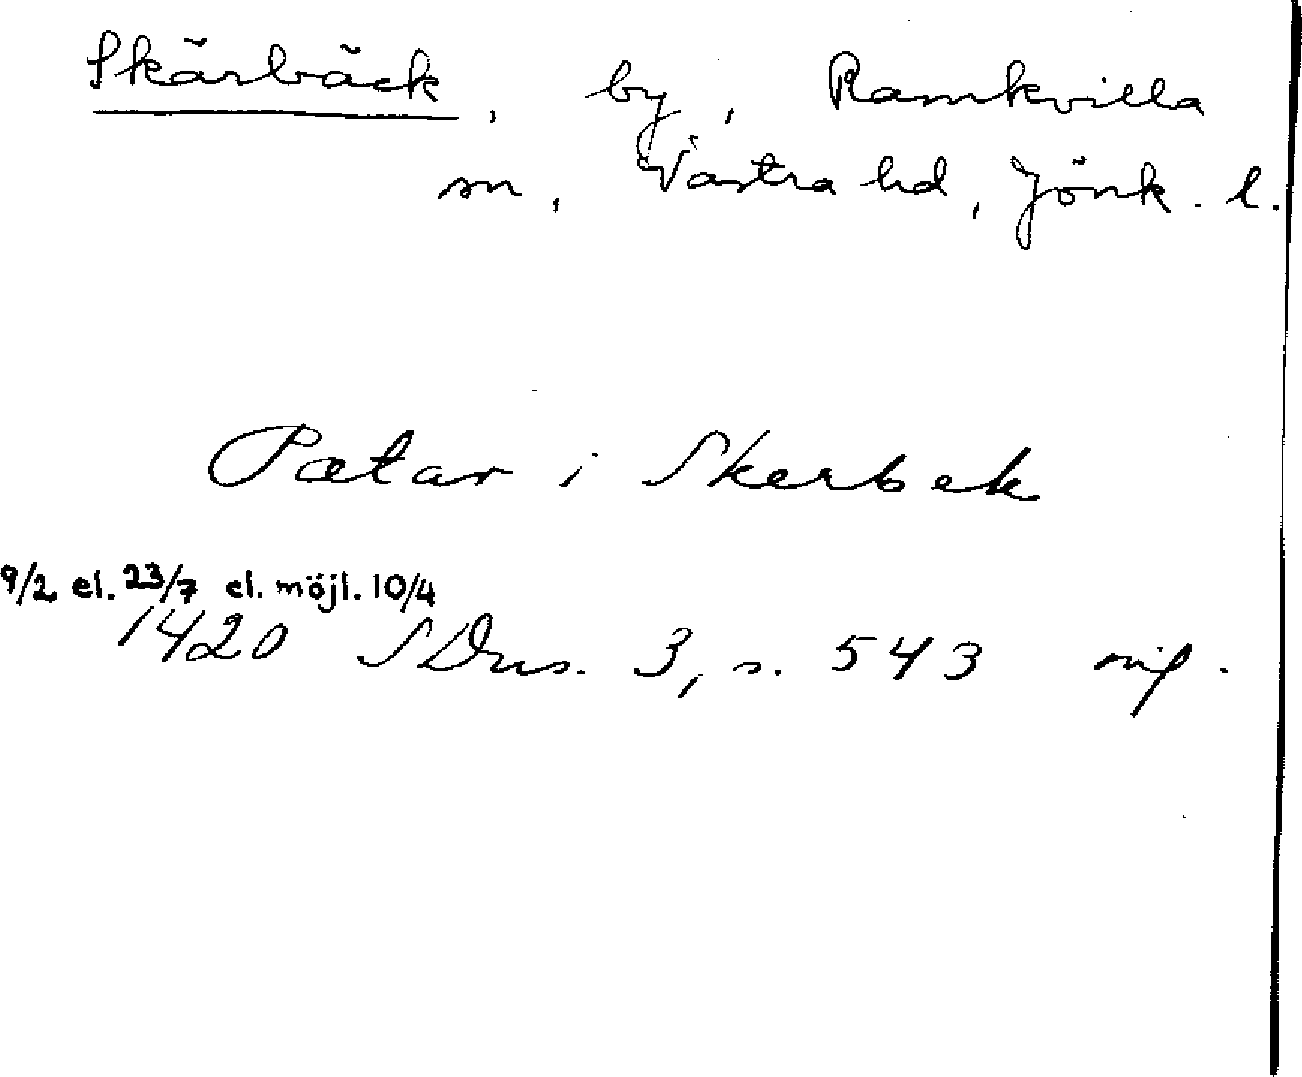 Skärbäck, by, Ramkvilla
sn, Västra hd, Jönk. l.
Pætar i Skerbek
9/2 el. 23/7 el. möjl. 10/4
1420 SDns. 3, s. 543